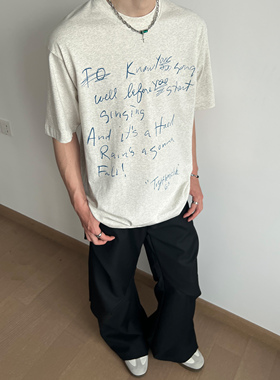 I'll Know you song
well before you start
singing
And it's a Hard
Rain's a gonna
Fall!